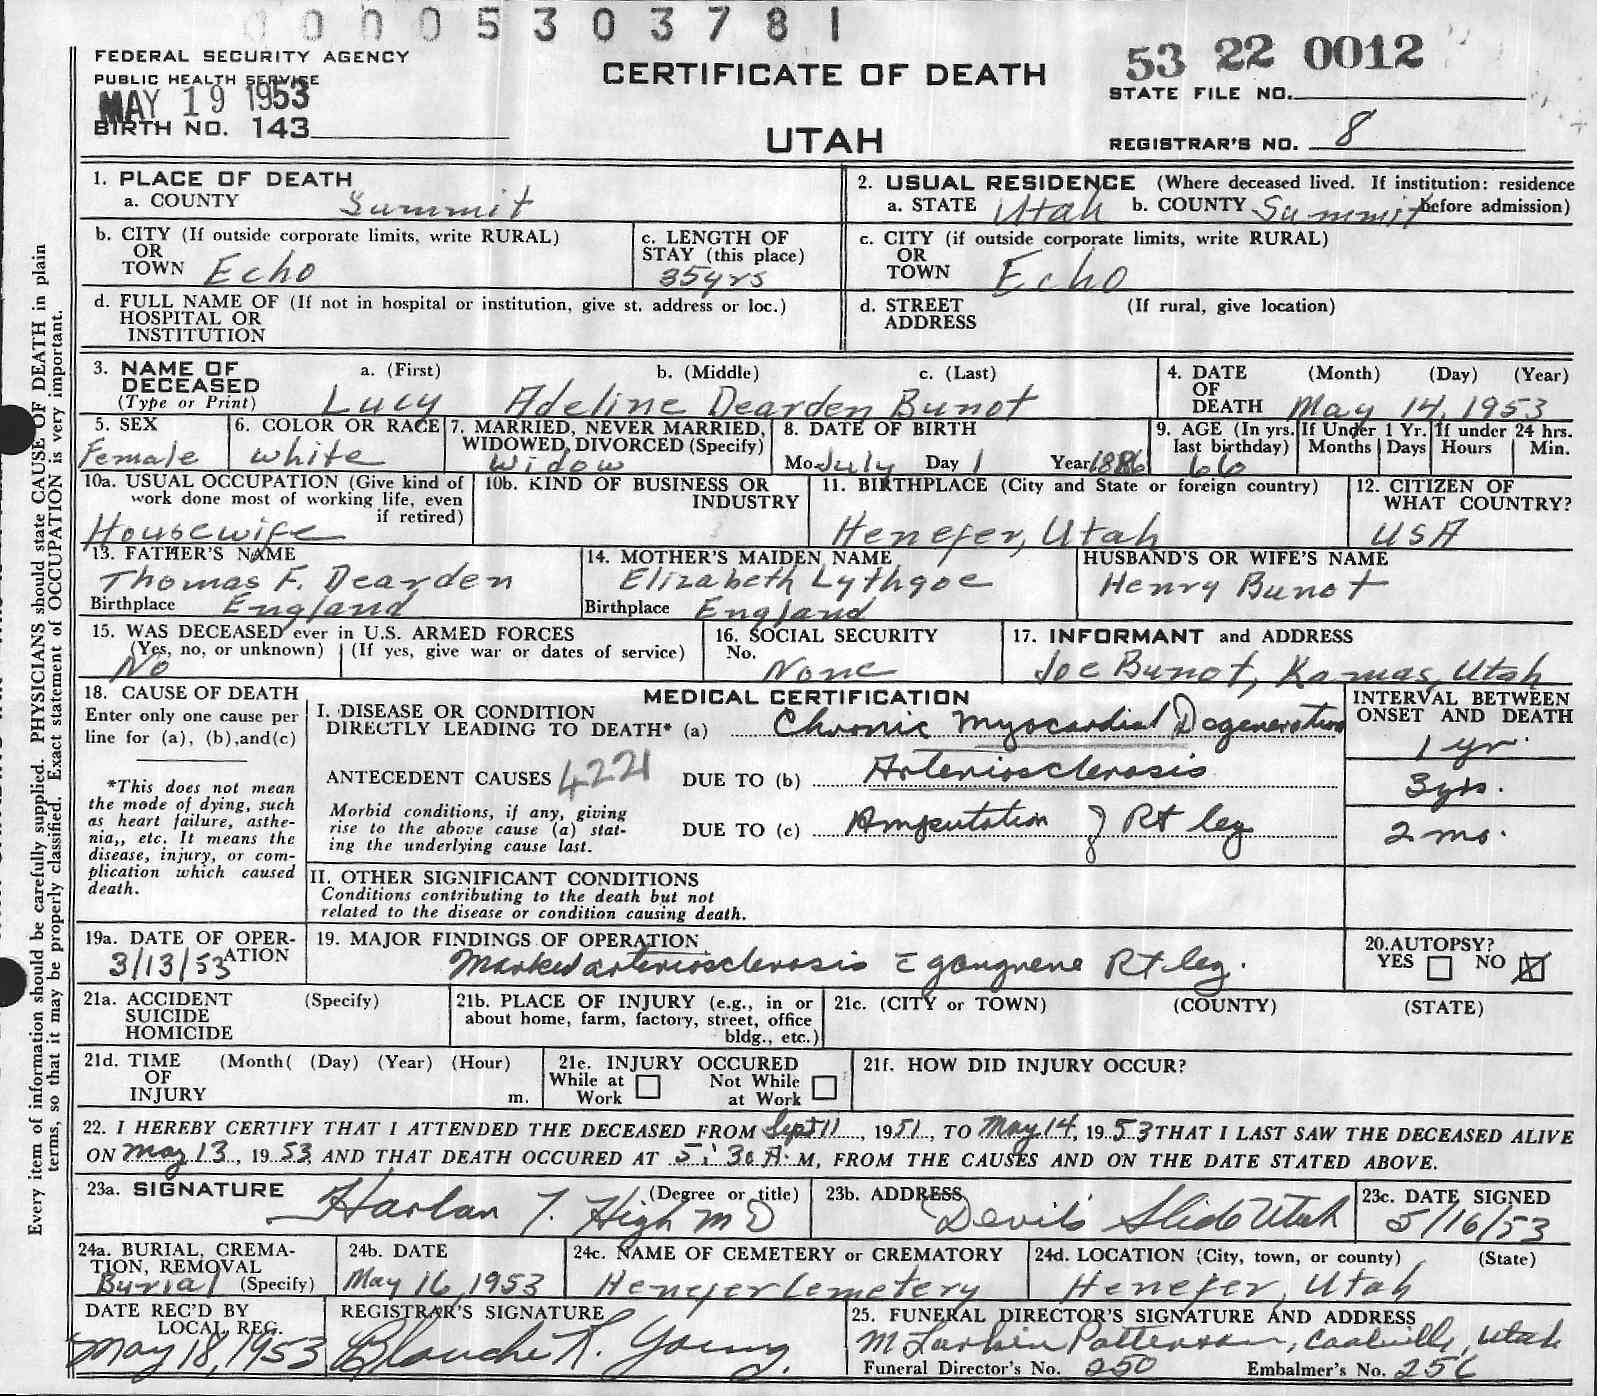 00005303781
FEDERAL SECURITY AGENCY
PUBLIC HEALTH SERVICE
MAY 19 1953
BIRTH NO. 143
CERTIFICATE OF DEATH
UTAH
53 22 0012
STATE FILE NO.
REGISTRAR'S NO. 8
Every item of information should be carefully supplied. PHYSICIANS should state CAUSE OF DEATH in plain
terms, so that it may be properly classified. Exact statement of OCCUPATION is very important.
1. PLACE OF DEATH
a. COUNTY Summit
2. USUAL RESIDENCE (Where deceased lived. If institution: residence
a. STATE Utah b. COUNTY Summit before admission)
b. CITY (If outside corporate limits, write RURAL)
OR
TOWN Echo
c. LENGTH OF
STAY (this place)
35yrs
c. CITY (if outside corporate limits, write RURAL)
OR
TOWN Echo
d. FULL NAME OF (If not in hospital or institution, give st. address or loc.)
HOSPITAL OR
INSTITUTION
d. STREET (If rural, give location)
ADDRESS
3. NAME OF a. (First) b. (Middle) c. (Last)
DECEASED
(Type or Print) Lucy Adeline Dearden Bunot
4. DATE (Month) (Day) (Year)
OF
DEATH May 14, 1953
5. SEX
Female
6. COLOR OR RACE
White
7. MARRIED, NEVER MARRIED,
WIDOWED, DIVORCED (Specify)
Widow
8. DATE OF BIRTH
Mo July Day 1 Year 1886
9. AGE (In yrs.
last birthday)
66
If Under 1 Yr.
Months Days
If under 24 hrs.
Hours Min.
10a. USUAL OCCUPATION (Give kind of
work done most of working life, even
if retired)
Housewife
10b. KIND OF BUSINESS OR
INDUSTRY
11. BIRTHPLACE (City and State or foreign country)
Henefer, Utah
12. CITIZEN OF
WHAT COUNTRY?
USA
13. FATHER'S NAME
Thomas F. Dearden
Birthplace England
14. MOTHER'S MAIDEN NAME
Elizabeth Lythgoe
Birthplace England
HUSBAND'S OR WIFE'S NAME
Henry Bunot
15. WAS DECEASED ever in U.S. ARMED FORCES
(Yes, no, or unknown) (If yes, give war or dates of service)
No
16. SOCIAL SECURITY
No.
None
17. INFORMANT and ADDRESS
Joe Bunot, Kamas, Utah
18. CAUSE OF DEATH
Enter only one cause per
line for (a), (b),and(c)
*This does not mean
the mode of dying, such
as heart failure, asthe-
nia,, etc. It means the
disease, injury, or com-
plication which caused
death.
MEDICAL CERTIFICATION
I. DISEASE OR CONDITION
DIRECTLY LEADING TO DEATH* (a) Chronic Myocardial Degeneration
ANTECEDENT CAUSES 4221 DUE TO (b) Arteriosclerosis
Morbid conditions, if any, giving
rise to the above cause (a) stat-
ing the underlying cause last.
DUE TO (c) Amputation of Rt leg
INTERVAL BETWEEN
ONSET AND DEATH
1 yr.
3yrs.
2 mo.
II. OTHER SIGNIFICANT CONDITIONS
Conditions contributing to the death but not
related to the disease or condition causing death.
19a. DATE OF OPER-
ATION
3/13/53
19. MAJOR FINDINGS OF OPERATION
Marked arteriosclerosis c̄ gangrene Rt leg.
20.AUTOPSY?
YES NO X
21a. ACCIDENT (Specify)
SUICIDE
HOMICIDE
21b. PLACE OF INJURY (e.g., in or
about home, farm, factory, street, office
bldg., etc.)
21c. (CITY or TOWN) (COUNTY) (STATE)
21d. TIME (Month( (Day) (Year) (Hour)
OF
INJURY m.
21e. INJURY OCCURED
While at Not While
Work at Work
21f. HOW DID INJURY OCCUR?
22. I HEREBY CERTIFY THAT I ATTENDED THE DECEASED FROM Sept 11, 1951, TO May 14, 1953 THAT I LAST SAW THE DECEASED ALIVE
ON May 13, 1953, AND THAT DEATH OCCURED AT 5:30 A. M, FROM THE CAUSES AND ON THE DATE STATED ABOVE.
23a. SIGNATURE (Degree or title)
Harlan T. High MD
23b. ADDRESS
Devil's Slide Utah
23c. DATE SIGNED
5/16/53
24a. BURIAL, CREMA-
TION, REMOVAL
Burial (Specify)
24b. DATE
May 16, 1953
24c. NAME OF CEMETERY or CREMATORY
Henefer Cemetery
24d. LOCATION (City, town, or county) (State)
Henefer, Utah
DATE REC'D BY
LOCAL REG.
May 18, 1953
REGISTRAR'S SIGNATURE
Blanche K. Young.
25. FUNERAL DIRECTOR'S SIGNATURE AND ADDRESS
M Larkin Patterson, Coalville, Utah
Funeral Director's No. 250 Embalmer's No. 256